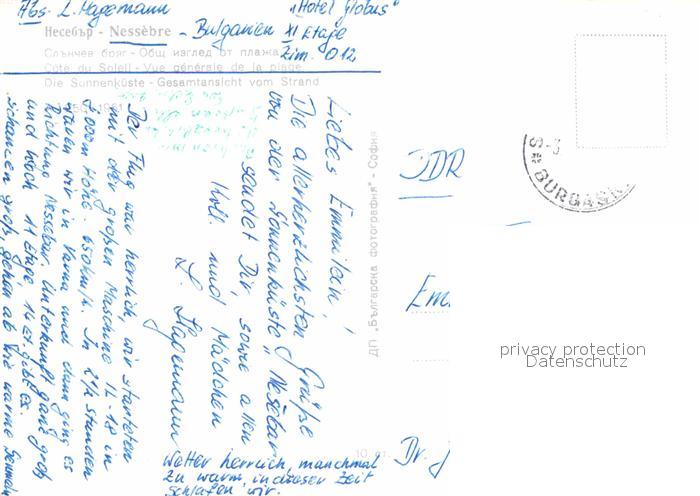 Abs. L. Hagemann „Hotel Globus"
Несебър - Nessèbre - Bulgarien XI Etage
Слънчев бряг - Общ изглед от плажа Zim. 012
Côte du Soleil - Vue générale de la plage
Die Sonnenküste - Gesamtansicht vom Strand
Liebes Emmilein,
Die allerherzlichsten Grüße
von der Sonnenküste „Nesebar"
sendet Dir, sowie allen
Koll. und Mädchen
L. Hagemann
Der Flug war herrlich, wir starteten
mit der großen Maschine IL-18 in
Höhe. In 2½ Stunden
waren wir in Varna und dann ging es
Richtung Nessebar. Unterkunft ganz groß
und hoch 11 Etage, 14 et. gibt es.
groß, schon ab warme
Wetter herrlich, manchmal
zu warm, in dieser Zeit
schlafen wir.
ДП „Българска фотография" - София
DDR
BURGAS
Em.
privacy protection
Datenschutz
Dr.